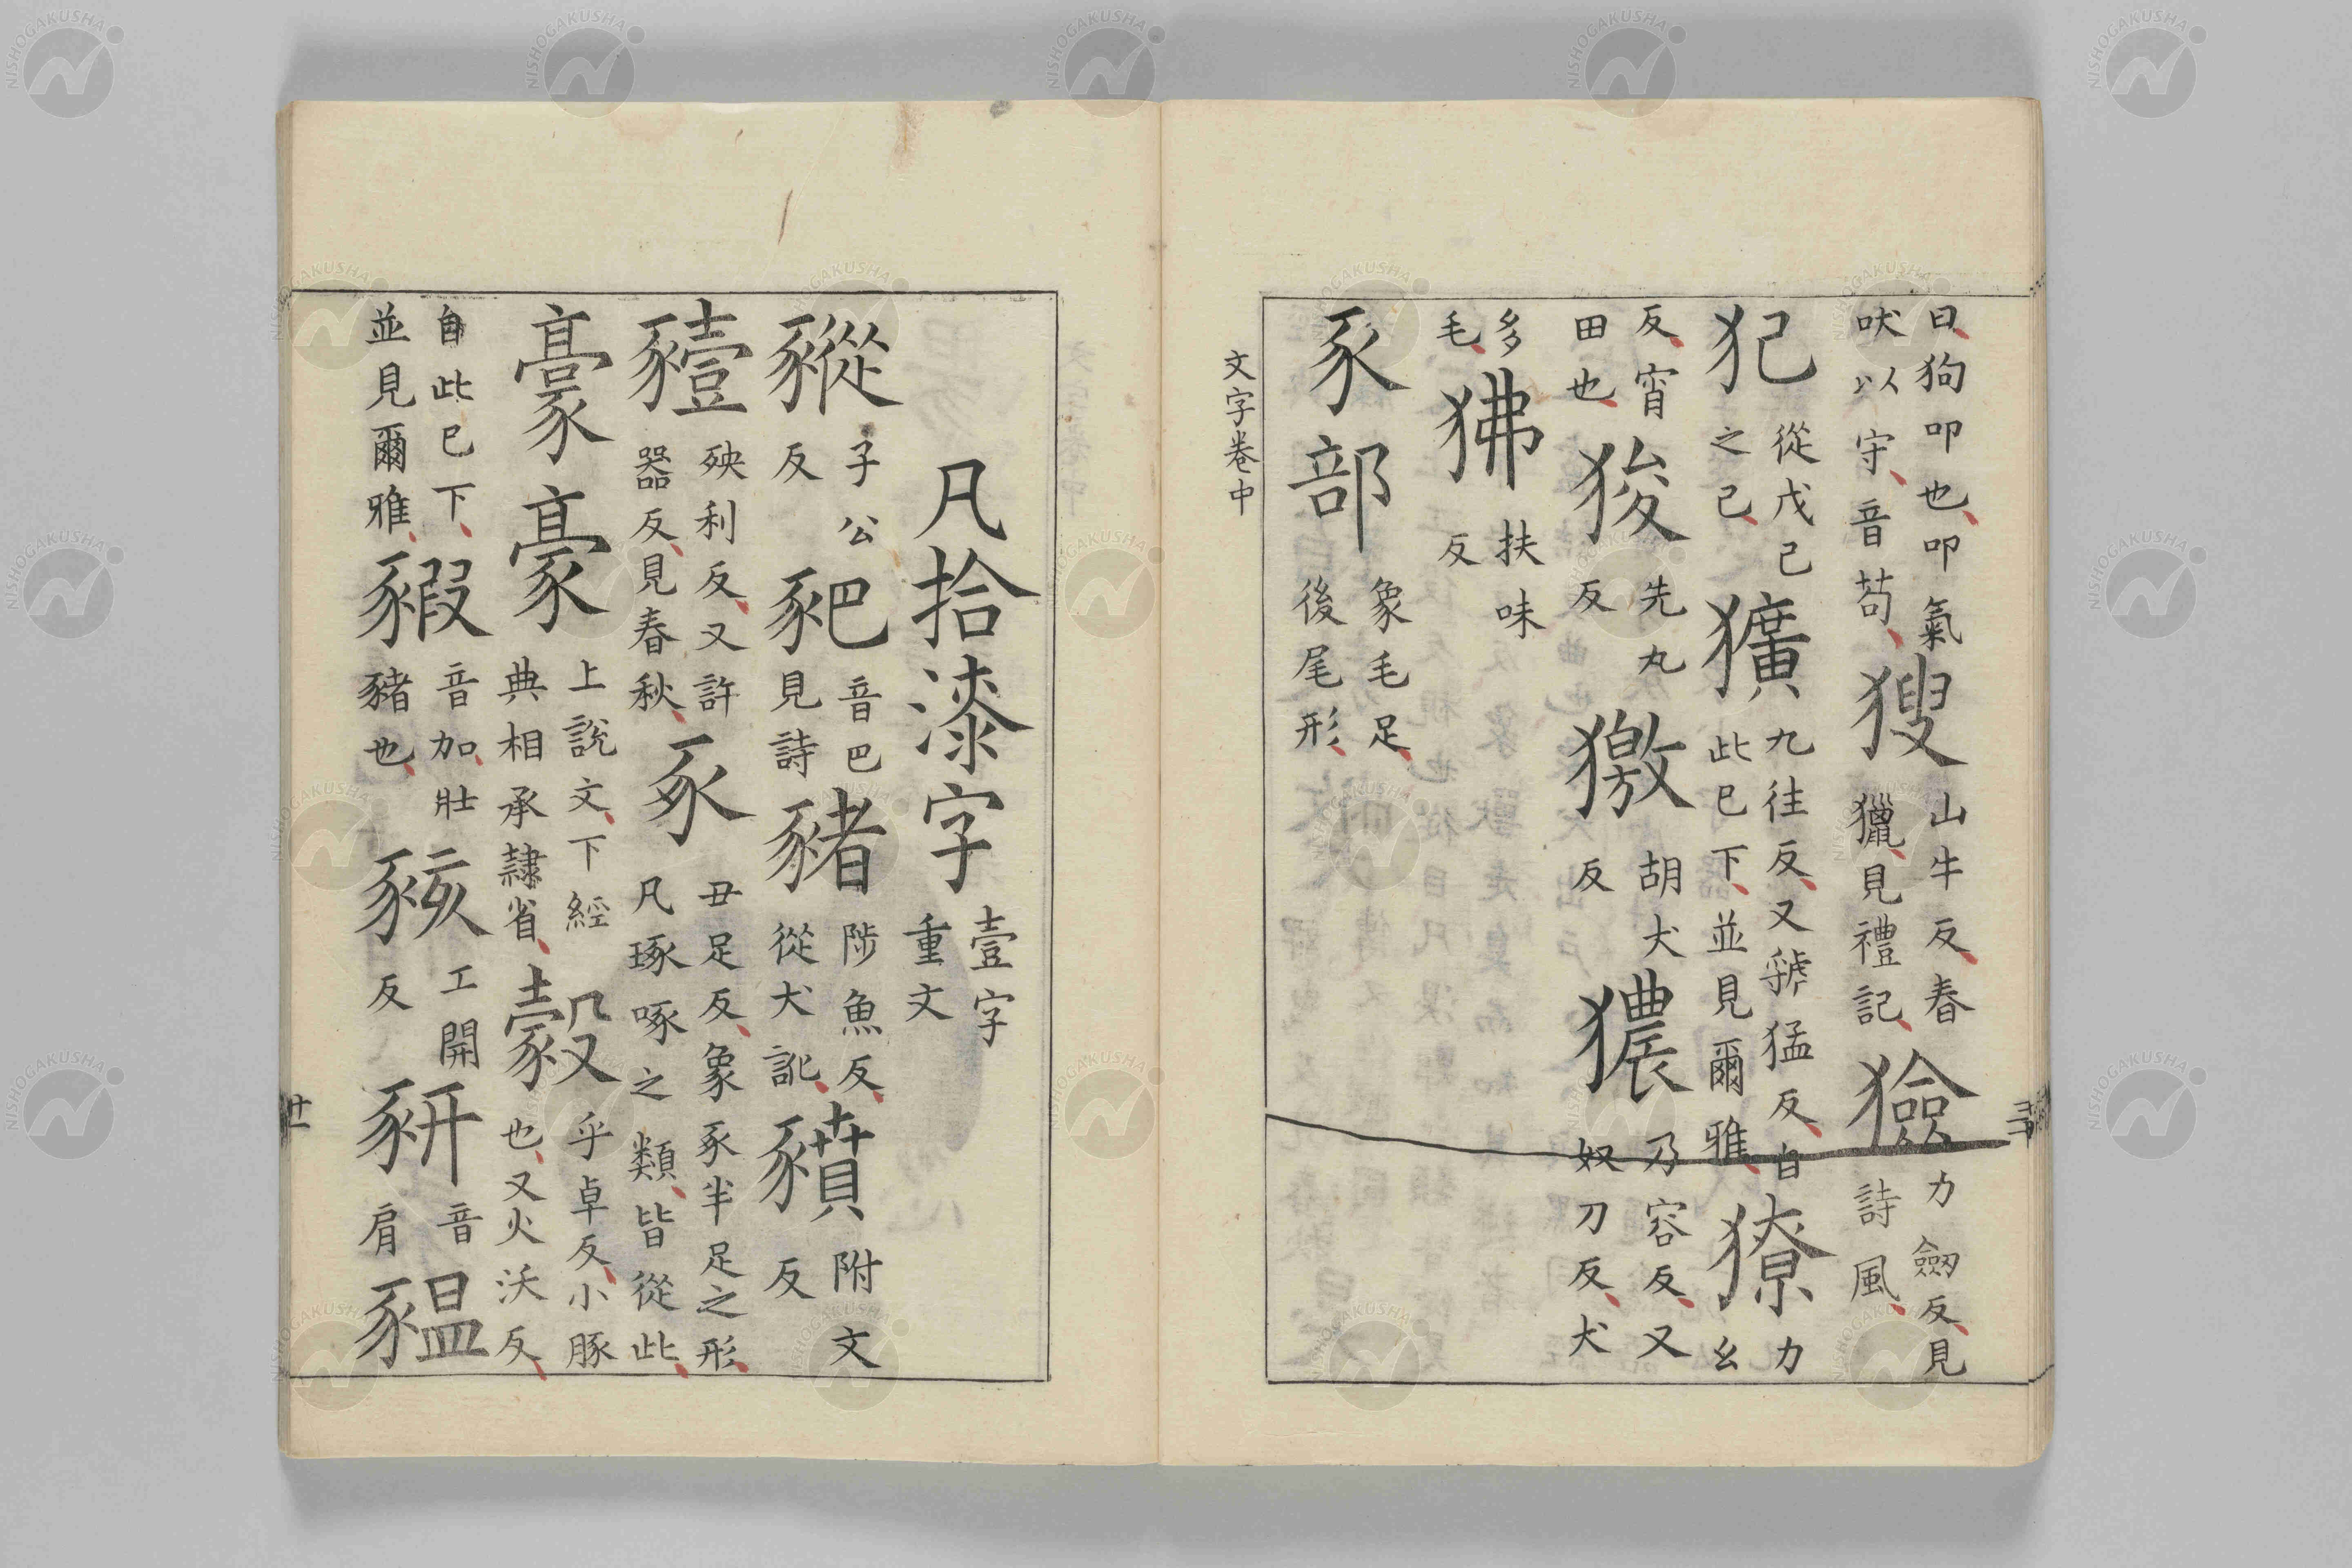 曰狗叩也叩氣吠以守音苟獀山牛反春獵見禮記獫力劒反見詩風
犯從戊己之己獷九往反又虢猛反自此已下並見爾雅獠力幺
反宵田也狻先丸反獥胡犬反㺜乃容反又奴刀反犬
多毛狒扶味反
豕部象毛足後尾形
文字卷中
凡拾漆字壹字重文
豵子公反豝音巴見詩豬陟魚反從犬訛豶附文反
豷殃利反又許器反見春秋豕丑足反象豕半足之形凡琢啄之類皆從此
豪豪上說文下經典相承隸省豰乎卓反小豚也又火沃反
自此已下並見爾雅豭音加壯豬也豥工開反豜音肩豱